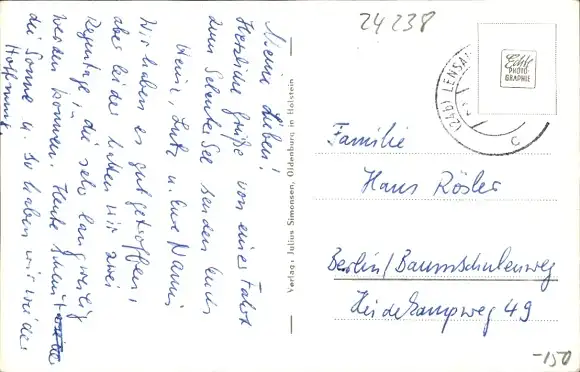 24238
Meine Lieben!
Herzliche Grüße von einer Fahrt
zum Selenter See senden Euch
Heinz, Lutz u. Eure Nanni
Wir haben es gut getroffen,
aber leider hatten wir zwei
Regentage, die sehr langweilig
werden können. Heute scheint
die Sonne u. so haben wir wieder
Hoffnung.
Verlag: Julius Simonsen, Oldenburg in Holstein
Echt
PHOTO-
GRAPHIE
(24b) LENSAHN
c
Familie
Hans Rösler
Berlin/Baumschulenweg
Heidekampweg 49
-150